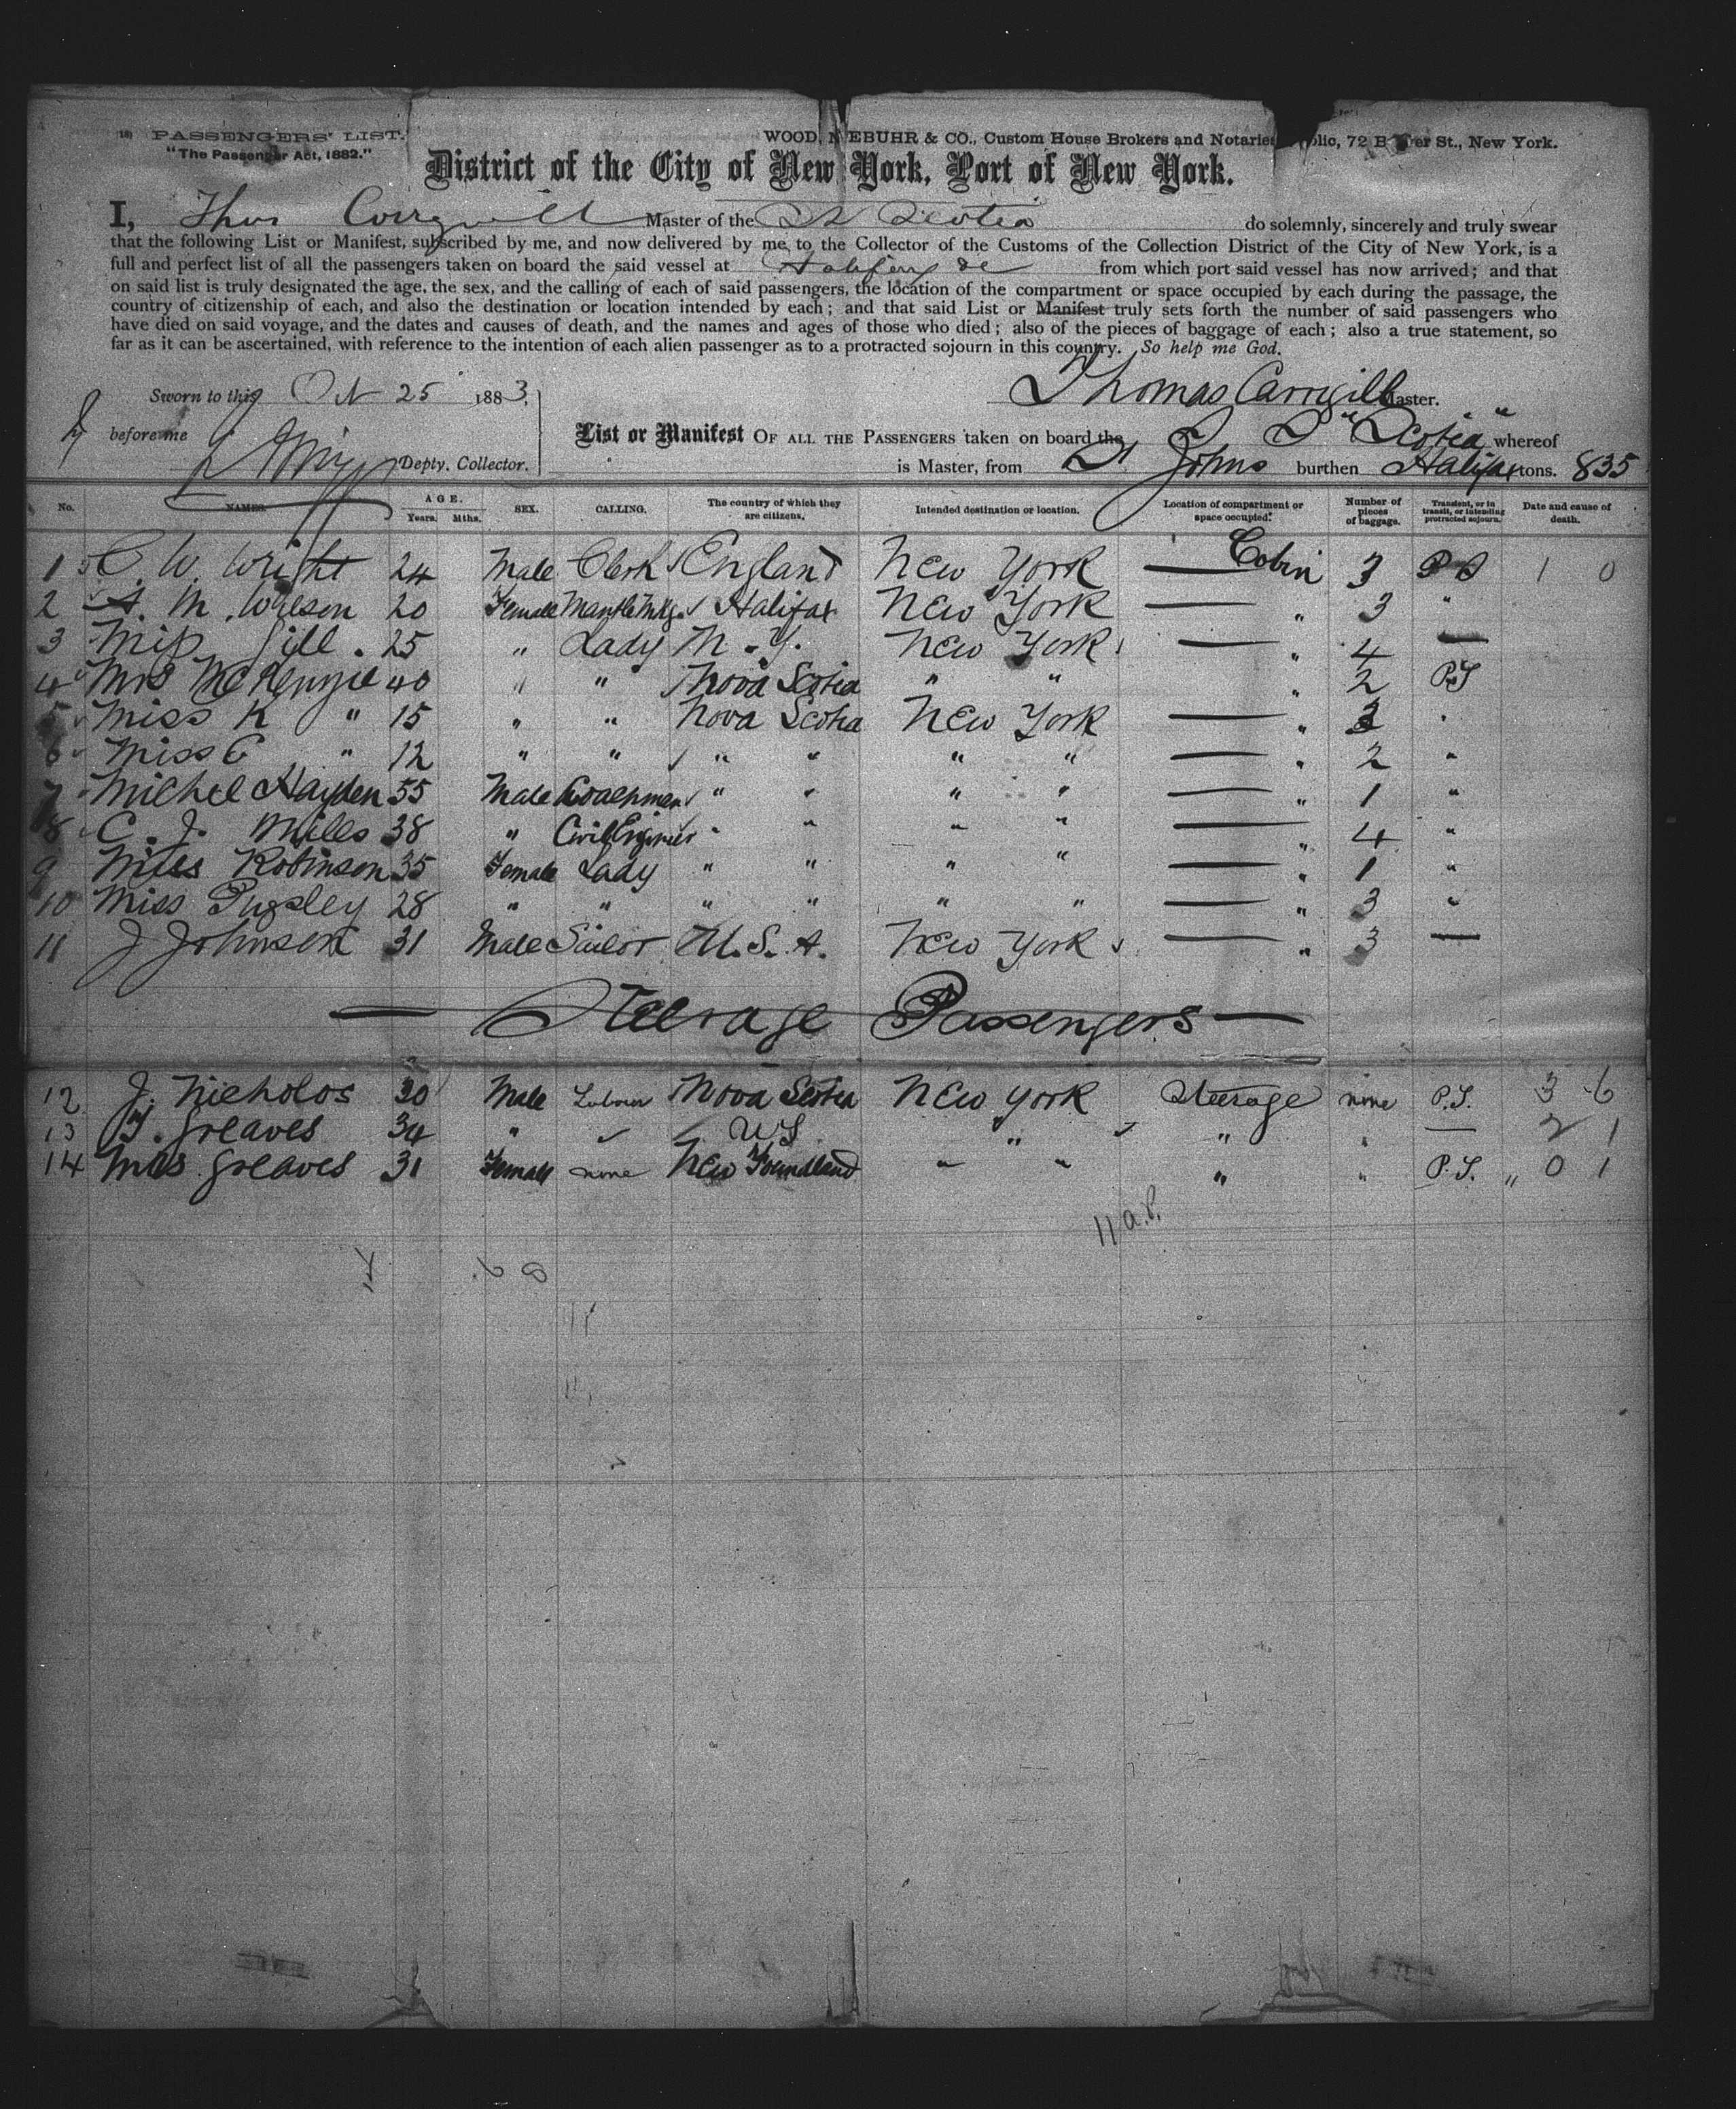 PASSENGERS' LIST.
"The Passenger Act, 1882."
WOOD, NIEBUHR & CO., Custom House Brokers and Notaries Public, 72 Beaver St., New York.
District of the City of New York, Port of New York.
I, Thos Master of the SS Scotia do solemnly, sincerely and truly swear
that the following List or Manifest, subscribed by me, and now delivered by me to the Collector of the Customs of the Collection District of the City of New York, is a
full and perfect list of all the passengers taken on board the said vessel at Halifax &c from which port said vessel has now arrived; and that
on said list is truly designated the age, the sex, and the calling of each of said passengers, the location of the compartment or space occupied by each during the passage, the
country of citizenship of each, and also the destination or location intended by each; and that said List or Manifest truly sets forth the number of said passengers who
have died on said voyage, and the dates and causes of death, and the names and ages of those who died; also of the pieces of baggage of each; also a true statement, so
far as it can be ascertained, with reference to the intention of each alien passenger as to a protracted sojourn in this country. So help me God.
Sworn to this Oct 25 1883,
Thomas Master.
before me
Depty. Collector.
List or Manifest OF ALL THE PASSENGERS taken on board the S. S. "Scotia" whereof
is Master, from St Johns burthen Halifax tons. 835
No. NAMES. AGE. Years. Mths. SEX. CALLING. The country of which they are citizens. Intended destination or location. Location of compartment or space occupied. Number of pieces of baggage. Transient, or in transit, or intending protracted sojourn. Date and cause of death.
1 C. W. Wright 24 Male Clerk England New York — Cabin 3 P S 1 0
2 A. M. Wilson 20 Female Halifax New York — " 3 "
3 Miss Gill. 25 " Lady N. Y. New York — " 4 —
4 Mrs McKenzie 40 " " Nova Scotia " " " 2 P.S
5 Miss K " 15 " " Nova Scotia New York — " 3 "
6 Miss E " 12 " " " " " " — " 2 "
7 Michel Hayden 55 Male Coachman " " " " — " 1 "
8 C. J. Mills 38 " Civil Enginer " " " " — " 4 "
9 Miss Robinson 35 Female Lady " " " " — " 1 "
10 Miss Pugsley 28 " " " " " " — " 3 "
11 J Johnson 31 Male Sailor U. S. A. New York — " 3 —
— Steerage Passengers —
12 J. Nicholos 30 Male Labour Nova Scotia New York Steerage none P.S. 3 6
13 T. Greaves 34 " " US " " " — 2 1
14 Mrs. Greaves 31 Female none New Foundland " " " " P.S. " 0 1
11 a.P.